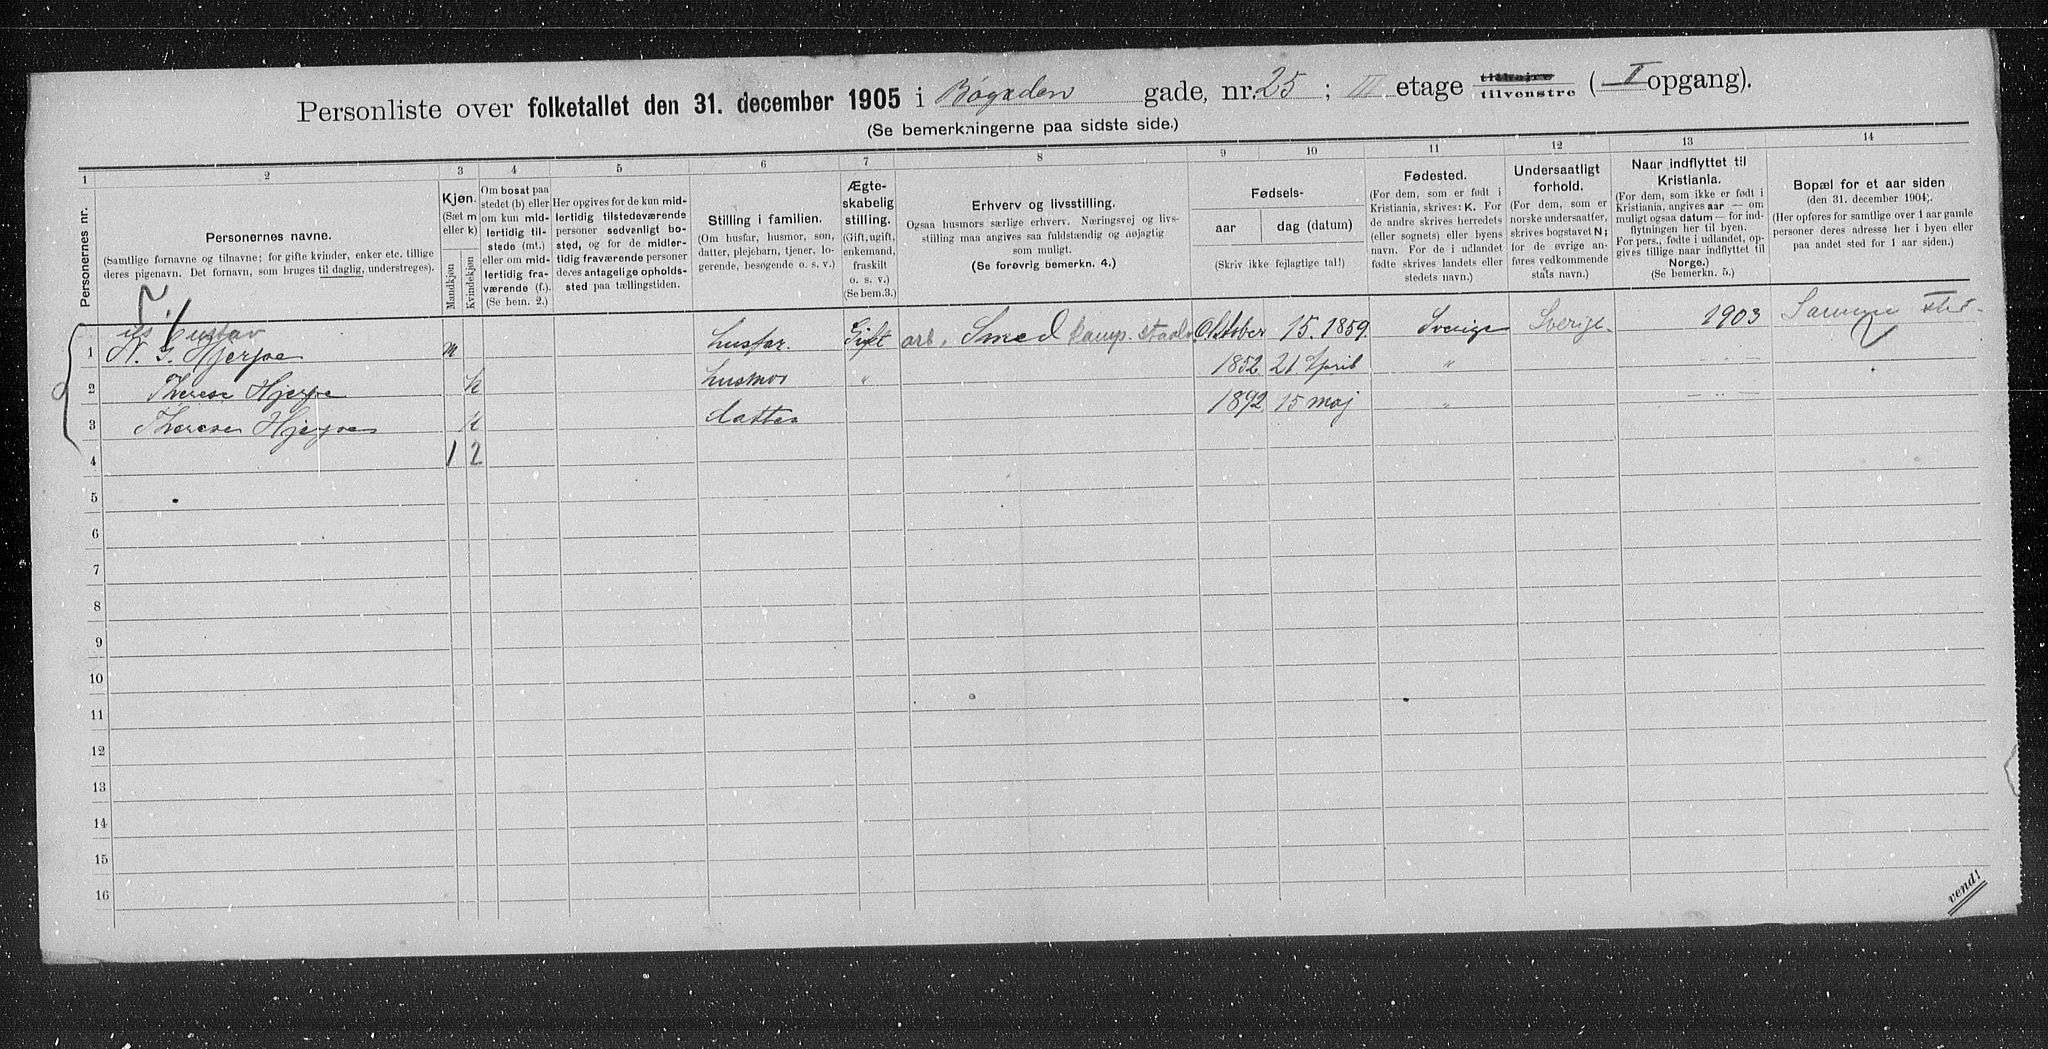 Personliste over folketallet den 31. december 1905 i Bøgaden gade, nr. 25; III etage tilhøjre tilvenstre (I opgang).
(Se bemerkningerne paa sidste side.)
1 2 3 4 5 6 7 8 9 10 11 12 13 14
Personernes nr.
Personernes navne.
(Samtlige fornavne og tilnavne; for gifte kvinder, enker etc. tillige
deres pigenavn. Det fornavn, som bruges til daglig, understreges).
Kjøn.
(Sæt m
eller k)
Mandkjøn
Kvindekjøn
Om bosat paa
stedet (b) eller
om kun mid-
lertidig til-
stede (mt.)
eller om mid-
lertidig fra-
værende (f.).
(Se bem. 2.)
Her opgives for de kun mid-
lertidig tilstedeværende
personer sedvanligt bo-
sted, og for de midler-
tidig fraværende personer
deres antagelige opholds-
sted paa tællingstiden.
Stilling i familien.
(Om husfar, husmor, søn,
datter, plejebarn, tjener, lo-
gerende, besøgende o. s. v.)
Ægte-
skabelig
stilling.
(Gift, ugift,
enkemand,
fraskilt
o. s. v.)
(Se bem. 3.)
Erhverv og livsstilling.
Ogsaa husmors særlige erhverv. Næringsvej og livs-
stilling maa angives saa fuldstændig og nøjagtig
som muligt.
(Se forøvrig bemerkn. 4.)
Fødsels-
aar dag (datum)
(Skriv ikke fejlagtige tal!)
Fødested.
(For dem, som er født i
Kristiania, skrives: K. For
de andre skrives herredets
(eller sognets) eller byens
navn. For de i udlandet
fødte skrives landets eller
stedets navn.)
Undersaatligt
forhold.
(For dem, som er
norske undersaatter,
skrives bogstavet N;
for de øvrige an-
føres vedkommende
stats navn.)
Naar indflyttet til
Kristiania.
(For dem, som ikke er født i
Kristiania, angives aar — om
muligt ogsaa datum — for ind-
flytningen her til byen.
For pers., fødte i udlandet, op-
gives tillige naar indflyttet til
Norge.)
(Se bemerkn. 5.)
Bopæl for et aar siden
(den 31. december 1904).
(Her opføres for samtlige over 1 aar gamle
personer deres adresse her i byen eller
paa andet sted for 1 aar siden.)
Gustav
1 N. G. Hjerpe m husfar. Gift arb. Smed Oktober 15. 1859. Sverige Sverige. 1903 Samme Sted.
2 Therese Hjerpe k husmor " 1852 21 April "
3 Therese Hjerpe k datter 1892 15 maj "
4 1 2
5
6
7
8
9
10
11
12
13
14
15
16
vend!